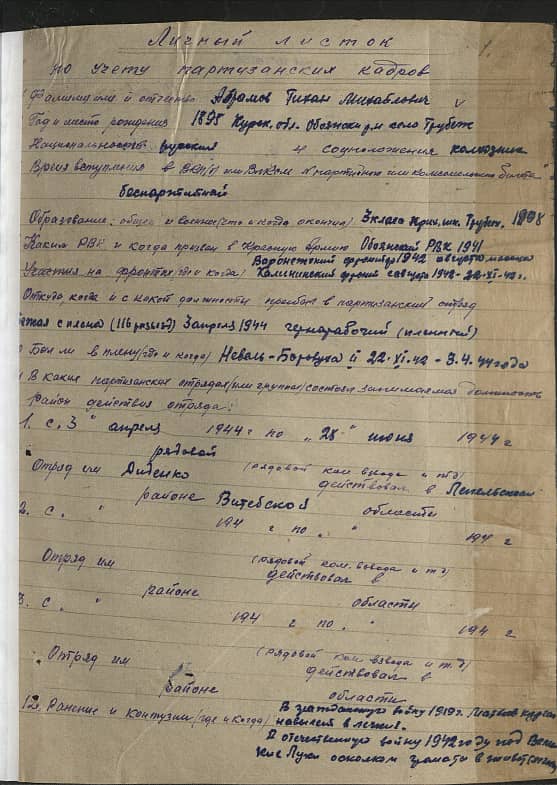 1.
Личный листок
по учету партизанских кадров
Фамилия имя и отчество Абрамов Тихан Михайлович
Год и место рождения 1895 Курск. обл. Обоянский р-н село Трубеж
Национальность русский 4 соцположения колхозник
Время вступления в ВКП(б) или ВЛКСМ № партийного или комсомольского билета
беспартийный
Образование: общее и военное (что и когда окончил) 3 класса Трубеж. 1908
Каким РВК и когда призван в Красную Армию Обоянский РВК 1941
Воронежский фронт 1942 август
Участия на фронте (где и когда) Калининский фронт с августа 1942 - 22-XI-42 г.
Откуда, когда и с какой должности прибыл в партизанский отряд
бежал с плена (116 разъезд) 3 апреля 1944 чернорабочий (пленный)
Был ли в плену (где и когда) Невель-Боровуха II 22-XI-42 - 3.4.44 года
В каких партизанских отрядах (или группах) состоял занимаемая должность
район действия отряда:
1. с „ 3 " апреля 1944 г по „ 28 " июня 1944 г
рядовой
Отряд им Диденко (рядовой ком взвода и т д) действовал в Лепельском
районе Витебской области
2. с „ " 194 г по „ " 194 г
Отряд им (рядовой ком. взвода и т д) действовал в
районе области
3. с „ " 194 г по „ " 194 г
Отряд им (рядовой ком взвода и т. д) действовал в
районе области
12. Ранение и контузии (где и когда) В гражданскую войну 1919 г.
навылет в легкие.
В отечественную войну 1942 году под Вели
кие Луки осколком гранаты в живот